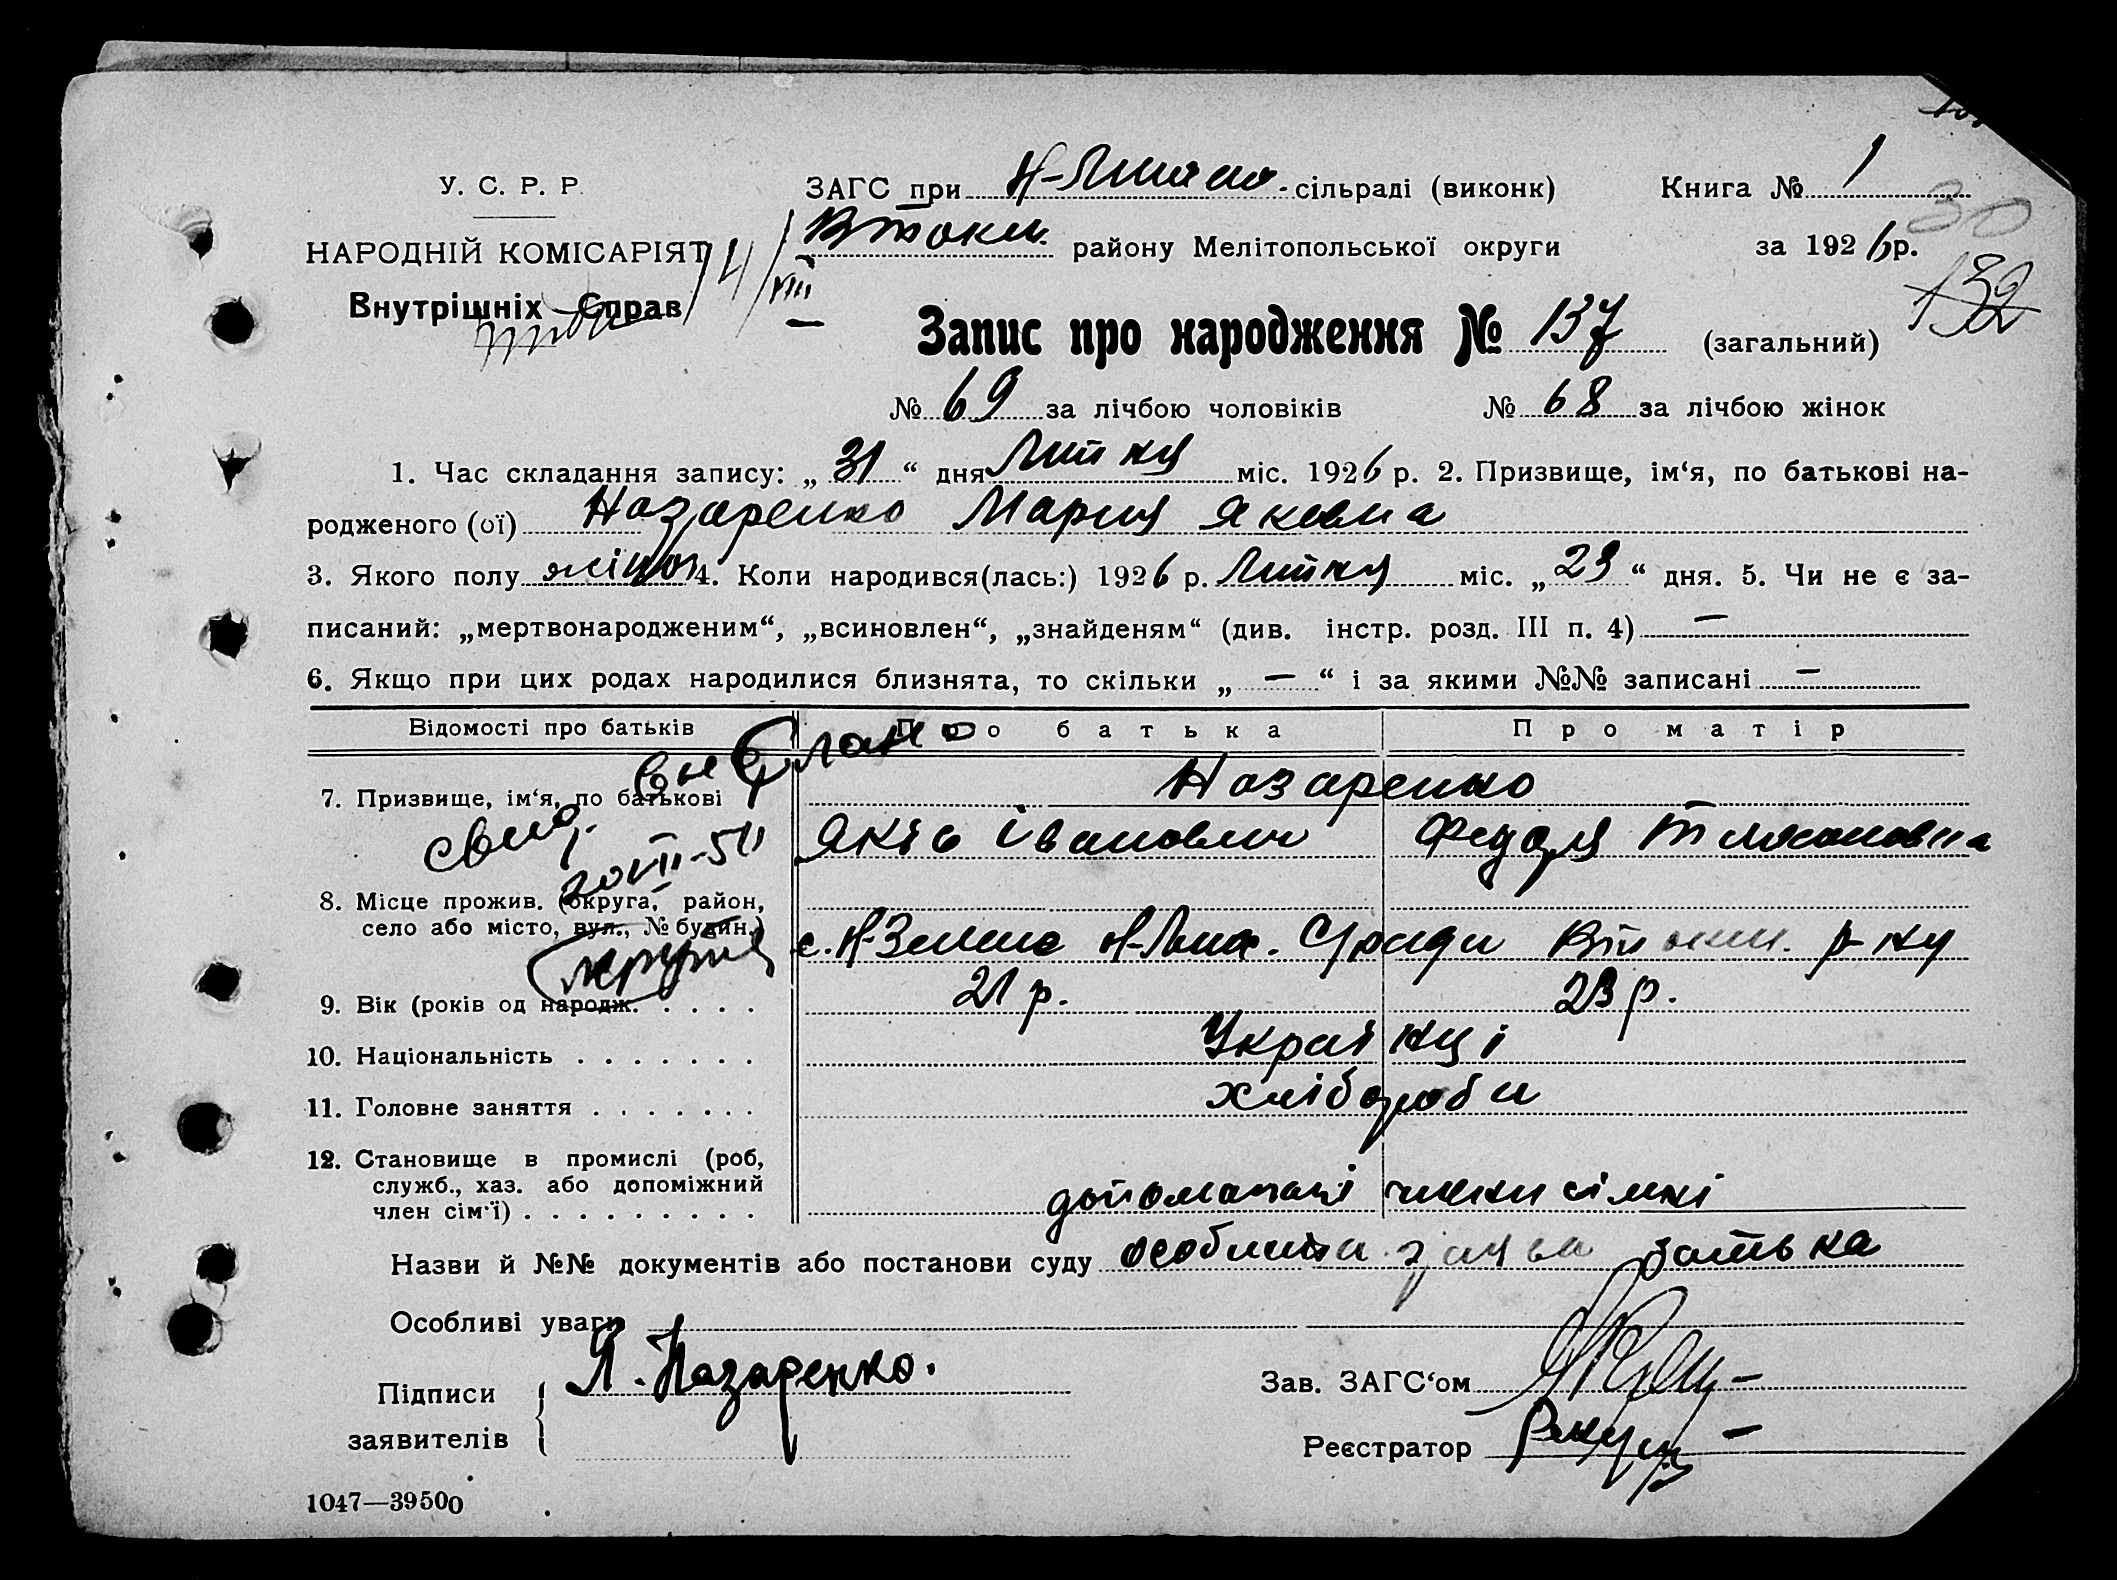 У. С. Р. Р.
ЗАГС при сільраді (виконк)
Книга № 1
НАРОДНІЙ КОМІСАРІЯТ
14/VIII
району Мелітопольської округи
за 1926 р.
30
Внутрішніх Справ
132
Запис про народження № 137 (загальний)
№ 69 за лічбою чоловіків № 68 за лічбою жінок
1. Час складання запису: „ 31 “ дня Липня міс. 1926 р. 2. Призвище, ім‘я, по батькові на-
родженого (ої) Назаренко Мария Яковна
3. Якого полу жіноч 4. Коли народився(лась:) 1926 р. Липня міс. „ 23 “ дня. 5. Чи не є за-
писаний: „мертвонародженим“, „всиновлен“, „знайденям“ (див. інстр. розд. III п. 4) —
6. Якщо при цих родах народилися близнята, то скільки „ — “ і за якими №№ записані —
Відомості про батьків Про батька Про матір
7. Призвище, ім‘я, по батькові Назаренко
Свид.
Яків Іванович Федора
20 VII-50
8. Місце прожив. (округа, район,
село або місто, вул., № будин.) р-ну
9. Вік (років од народж. . . . . 21 р. 23 р.
10. Національність . . . . . . . Українці
11. Головне заняття . . . . . . . хлібороби
12. Становище в промислі (роб,
служб., хаз. або допоміжний
член сім‘ї) . . . . . . . . . допомагаючі члени сімї
Назви й №№ документів або постанови суду особиста заява батька
Особливі уваги
Підписи Я. Назаренко.
заявителів
Зав. ЗАГС‘ом
Реєстратор
1047—39500